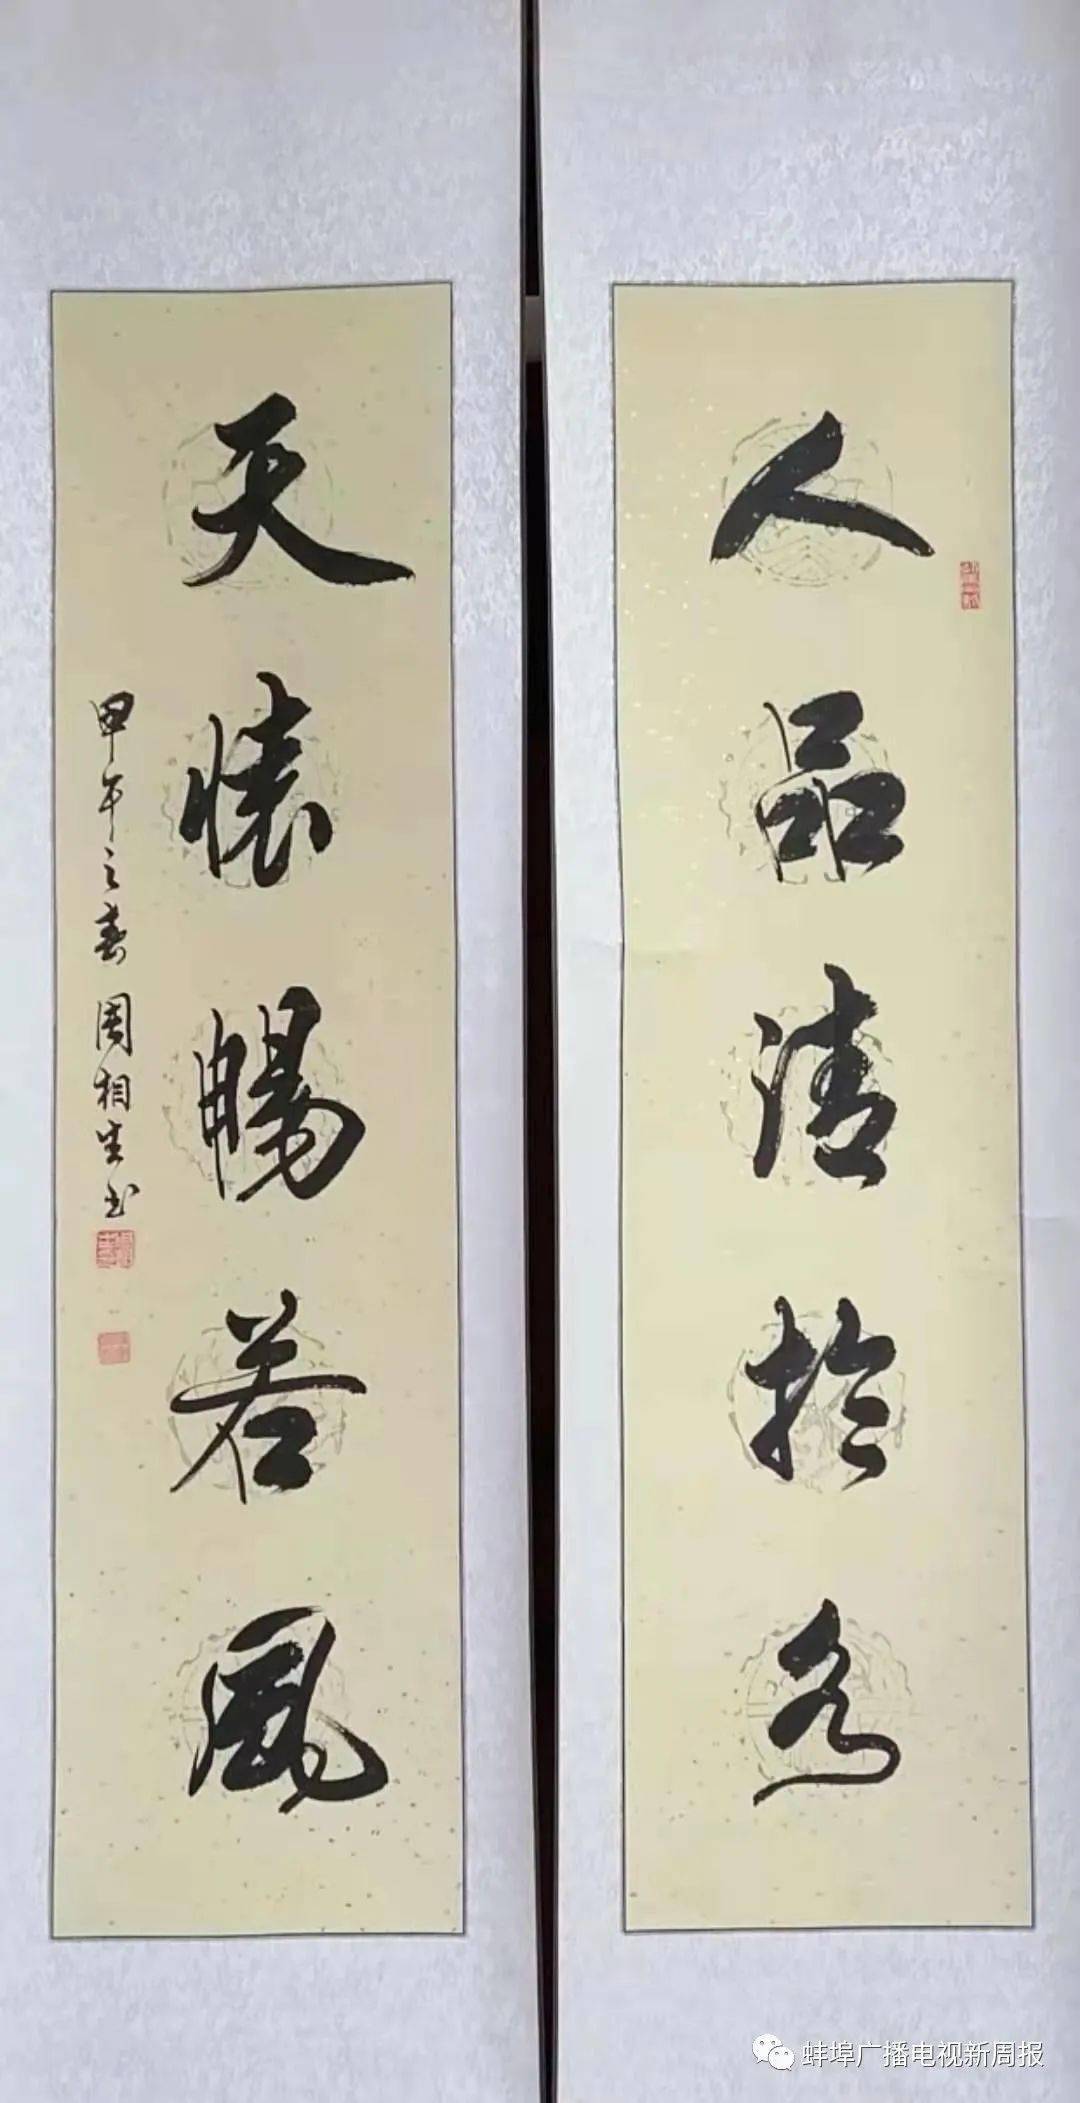 人品清於水
天懷暢若風
甲午之春 周相生书
蚌埠广播电视新周报